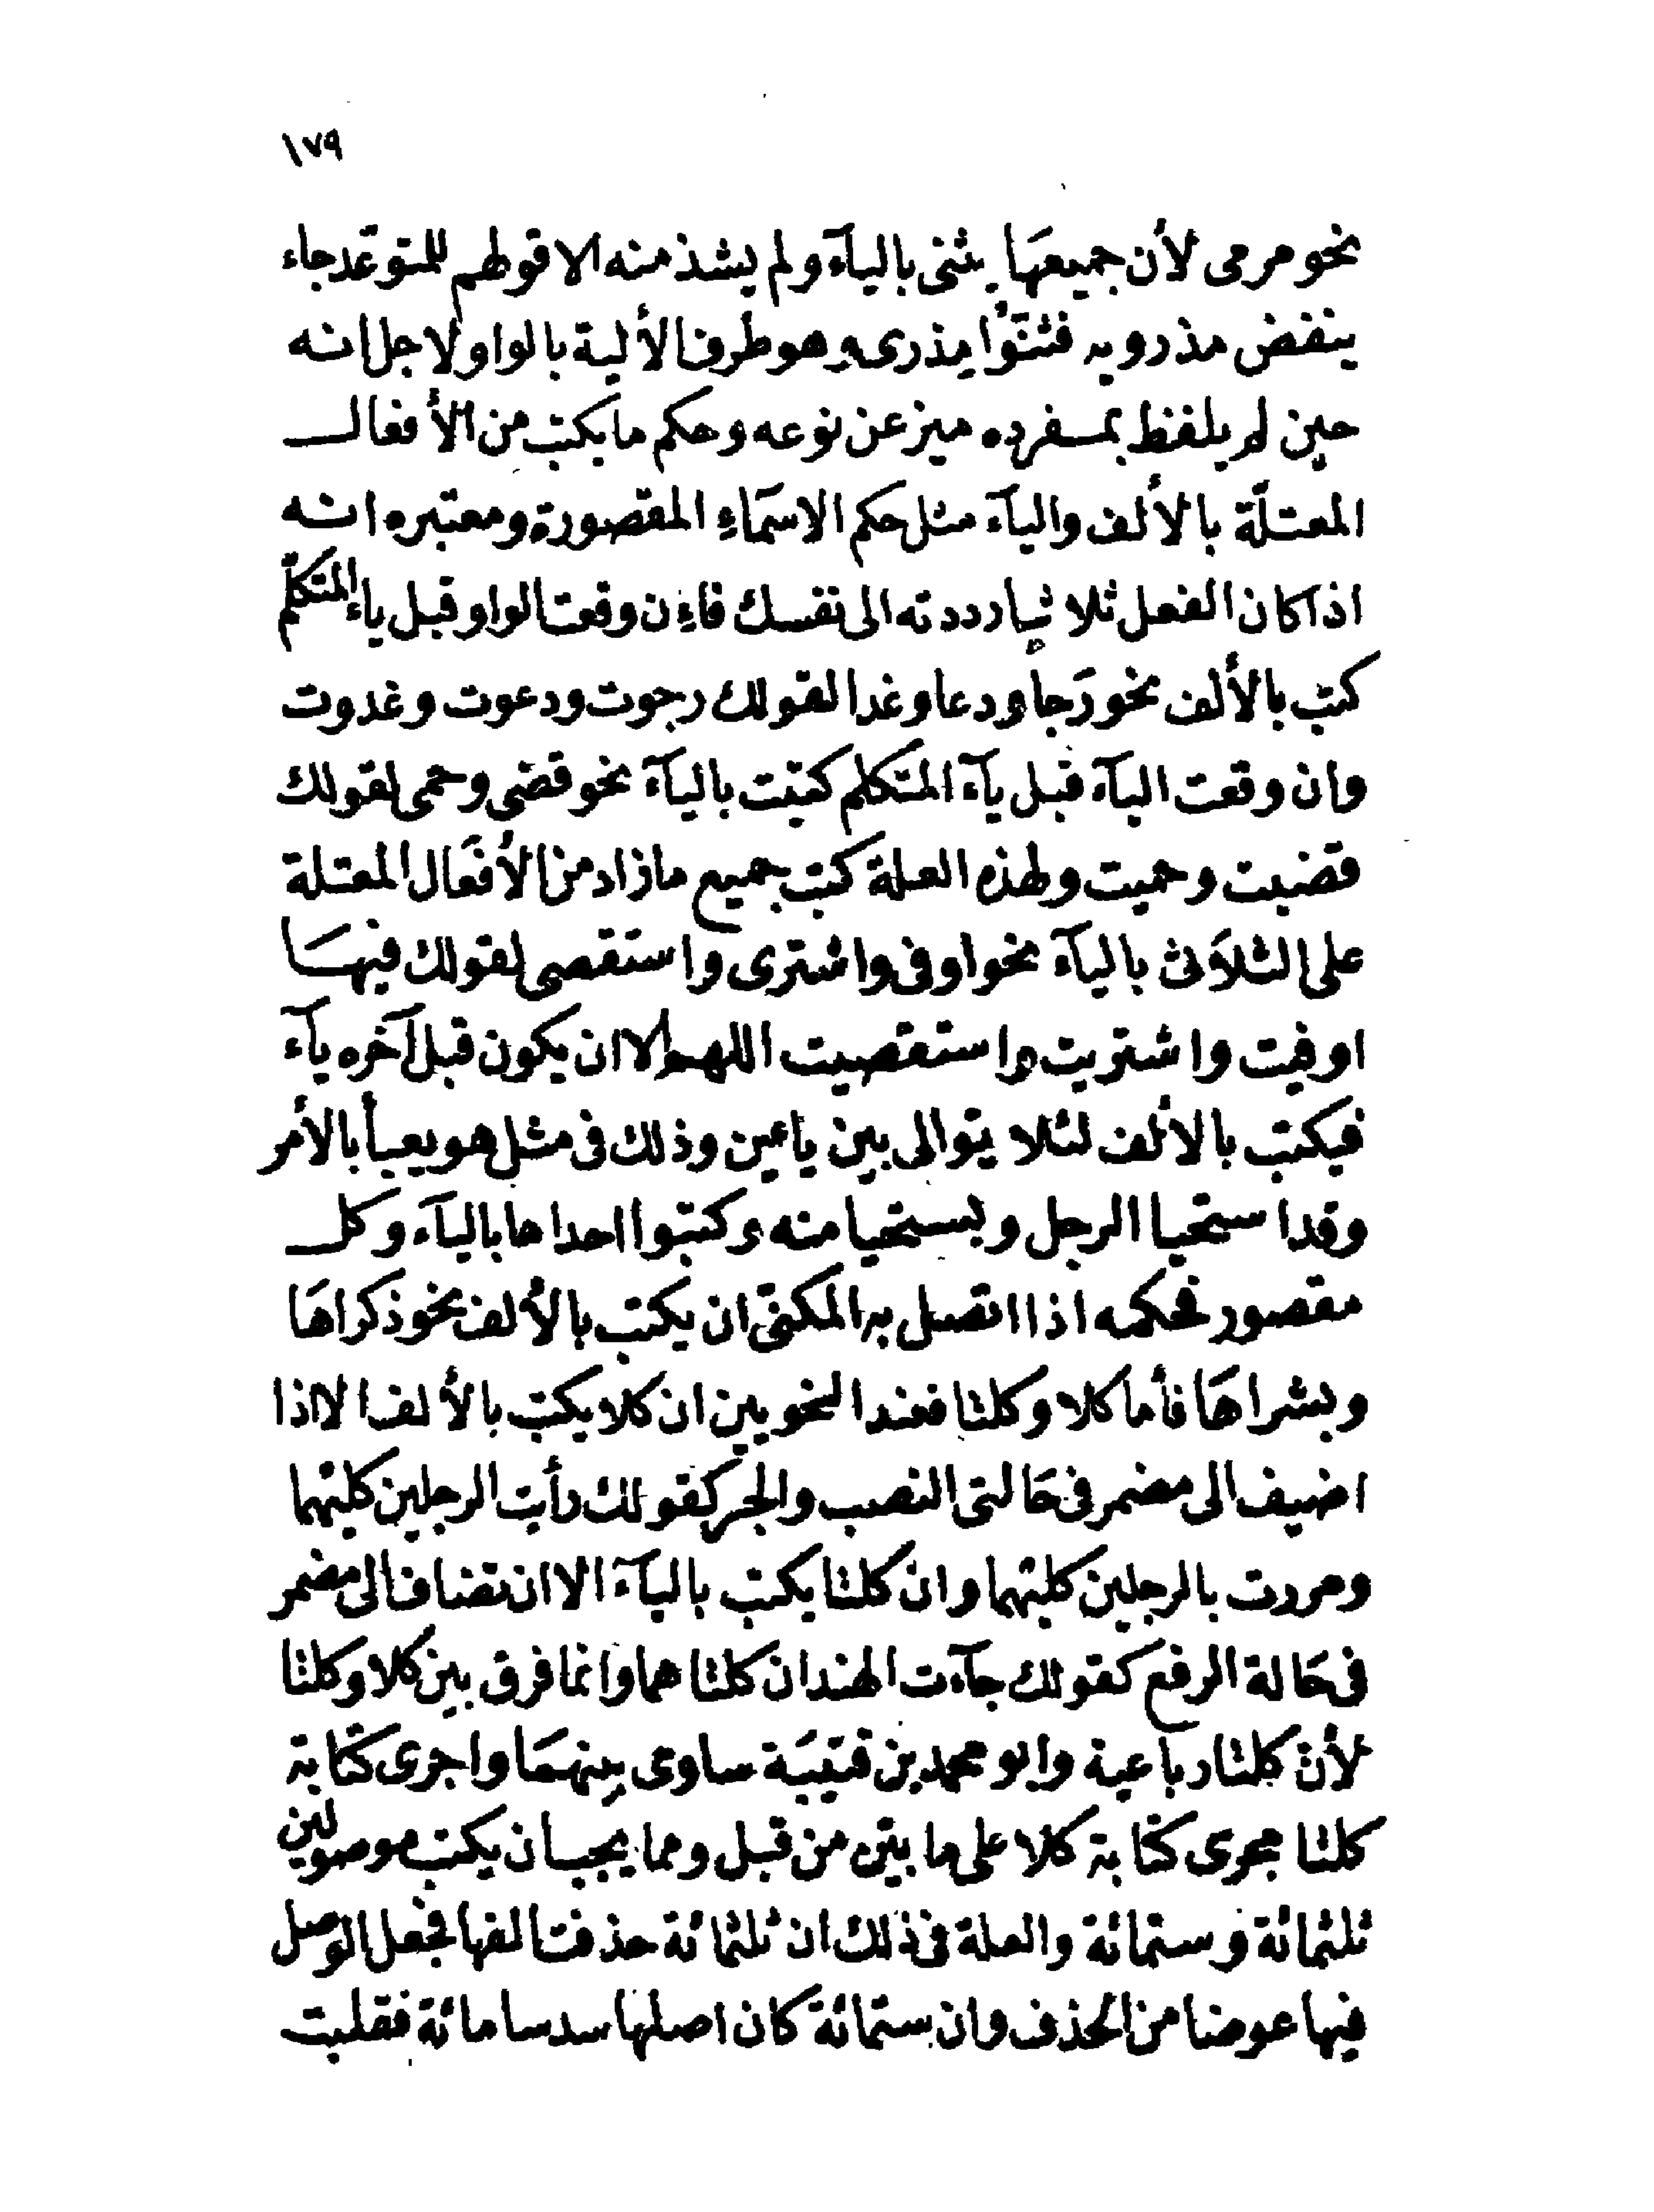 ١٧٩
نحو مرمى لأن جميعهَا يثنى باليآء ولم يشذ منه الا قولهم للمتوعد جاء
ينفض مذرويه فثنَّوْا مِذرى وهو طرف الألية بالواو لاجل انه
حين لم يلفظ بمفرده ميز عن نوعه وحكم ما يكتب من الأفعال
المعتلّة بالألف واليآء مثل حكم الاسمَاءِ المقصورة ومعتبره انه
اذا كان الفعل ثلاثيا رددته الى نفسك فاءِن وقعت الواو قبل ياء المتكلّم
كتب بالألف نحو رَجا ودعا وغدا لقولك رجوت ودعوت وغدوت
وان وقعت اليآء قبل يآء المتكلم كتبت باليآء نحو قضى وحمى لقولك
قضيت وحميت ولهذه العلة كتب جميع ما زاد من الأفعَال المعتلة
على الثلاَث باليآء نحو اوفى واشترى واستقصى لقولك فيهَا
اوفيت واشتريت واستقصيت اللهم الا ان يكون قبل آخره يآء
فيكتب بالألف لئلا يتوالى بين ياءين وذلك فى مثل هو يعيأ بالأمر
وقد استحيا الرجل ويستحيا منه وكتبوا احداها باليآء وكل
مقصور فحكمه اذا اتصل به المكنىّ ان يكتب بالألف نحو ذكراهَا
وبشراهَا فأما كلا وكلتا فعند النحويين ان كلا يكتب بالألف الا اذا
اضيف الى مضمر فى حَالتى النصب والجر كقولك رأيت الرجلين كليهما
ومررت بالرجلين كليهما وان كلتا يكتب باليآء الا ان تضاف الى مضمر
فى حَالة الرفع كقولك جآءت الهندان كلتاهما وانما فرق بين كلا وكلتا
لأنّ كلتا رباعية وابو محمد بن قتيبَة ساوى بينهمَا واجرى كتَابة
كلتا مجرى كتابة كلا على ما بيّن من قبل ومما يجب ان يكتب موصولين
ثلثمائة وستمائة والعلة فى ذلك ان ثلثمائة حذفت الفها فجعل الوصل
فيها عوضا من الحذف وان ستمائة كان اصلها سدسا مائة فقلبت